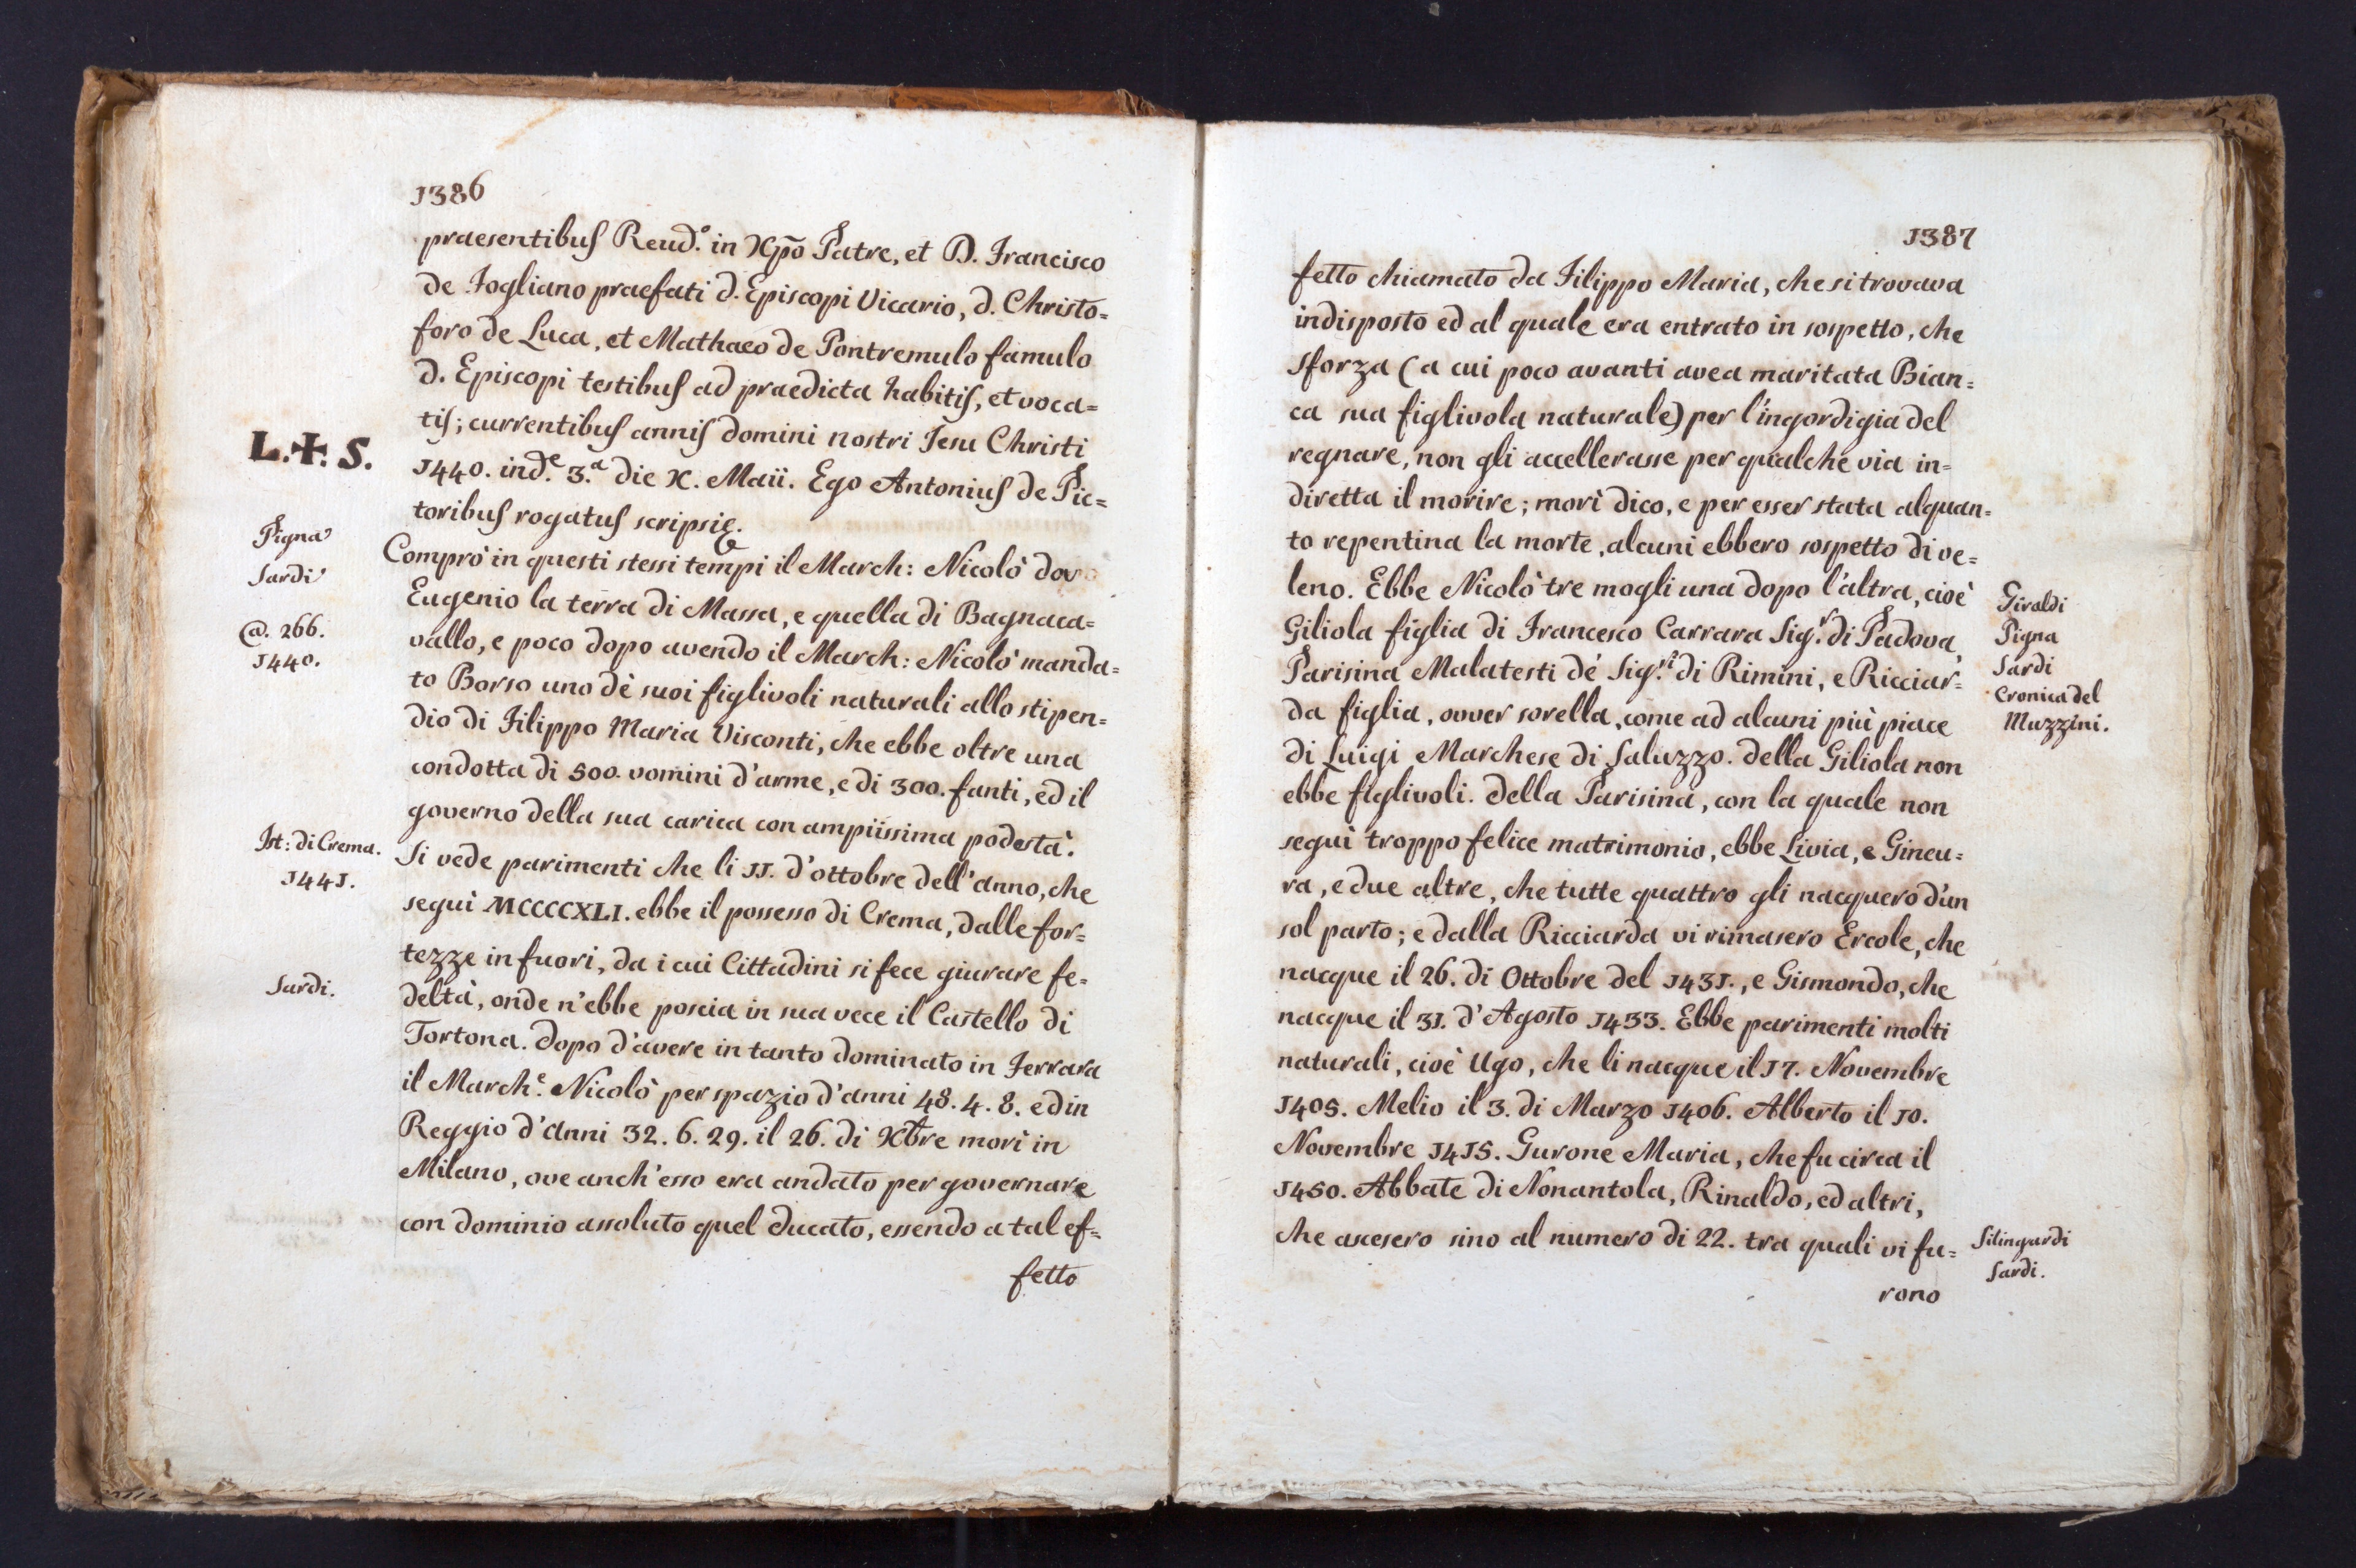 1386
praesentibus Reud.º in Xp̄o Patre, et D. Francisco
de Fogliano praefati d. Episcopi Vicario, d. Christo=
foro de Luca, et Mathaeo de Pontremulo famulo
d. Episcopi testibus ad praedicta habitis, et voca=
tis; currentibus annis domini nostri Jesu Christi
L.✝.S.
1440. ind.e 3.a die X. Maii. Ego Antonius de Pic=
toribus rogatus scripsi &.
Pigna
Sardi
@. 266.
1440.
Comprò in questi stessi tempi il March: Nicolò da
Eugenio la terra di Massa, e quella di Bagnaca=
vallo, e poco dopo avendo il March: Nicolò manda=
to Borso uno dè suoi figlivoli naturali allo stipen=
dio di Filippo Maria Visconti, che ebbe oltre una
condotta di 500. vomini d'arme, e di 300. fanti, ed il
governo della sua carica con ampiissima podestà.
Ist: di Crema.
1441.
Si vede parimenti che li 11. d'ottobre dell'anno, che
seguì MCCCCXLI. ebbe il possesso di Crema, dalle for=
tezze in fuori, da i cui Cittadini si fece giurare fe=
Sardi.
deltà, onde n'ebbe poscia in sua vece il Castello di
Tortona. Dopo d'avere in tanto dominato in Ferrara
il March.e Nicolò per spazio d'anni 48. 4. 8. ed in
Reggio d'anni 32. 6. 29. il 26. di Xbre morì in
Milano, ove anch'esso era andato per governare
con dominio assoluto quel Ducato, essendo a tal ef=
fetto
1387
fetto chiamato da Filippo Maria, che si trovava
indisposto ed al quale era entrato in sospetto, che
Sforza (a cui poco avanti avea maritata Bian=
ca sua figlivola naturale) per l'ingordigia del
regnare, non gli accellerasse per qualche via in=
diretta il morire; morì dico, e per esser stata alquan=
to repentina la morte, alcuni ebbero sospetto di ve=
leno. Ebbe Nicolò tre mogli una dopo l'altra, cioè
Giliola figlia di Francesco Carrara Sig.r di Padova,
Parisina Malatesti dé Sig.ri di Rimini, e Ricciar=
da figlia, ovver sorella, come ad alcuni più piace
di Luigi Marchese di Saluzzo. Della Giliola non
ebbe figlivoli. Della Parisina, con la quale non
seguì troppo felice matrimonio, ebbe Livia, e Gineu=
ra, e due altre, che tutte quattro gli nacquero d'un
sol parto; e dalla Ricciarda vi rimasero Ercole, che
nacque il 26. di Ottobre del 1431., e Gismondo, che
nacque il 31. d'Agosto 1433. Ebbe parimenti molti
naturali, cioè Ugo, che li nacque il 17. Novembre
1405. Melio il 3. di Marzo 1406. Alberto il 10.
Novembre 1415. Gurone Maria, che fu circa il
1450. Abbate di Nonantola, Rinaldo, ed altri,
che ascesero sino al numero di 22. tra quali vi fu=
rono
Giraldi
Pigna
Sardi
Cronica del
Muzzini.
Silingardi
Sardi.